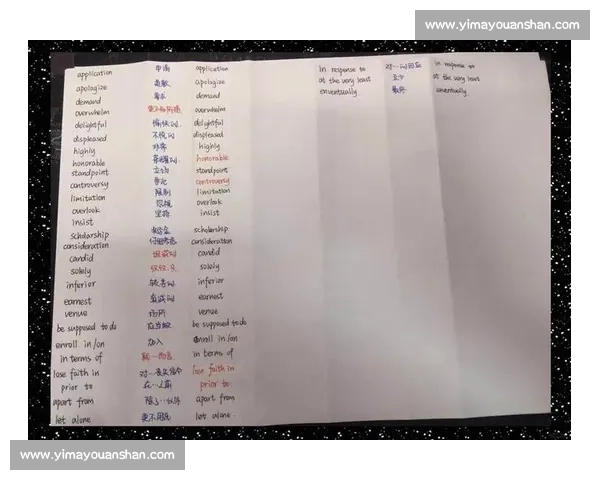 www.yimayouanshan.com
application 申请 application
apologize 道歉 apologize
demand 要求 demand
overwhelm overwhelm
delightful 愉快的 delightful
displeased 不悦的 displeased
highly 非常 highly
honorable 荣耀的 honorable
standpoint 立场 standpoint
controversy 争论 controversy
limitation 限制 limitation
overlook 忽视 overlook
insist 坚持 insist
scholarship 奖学金 scholarship
consideration 仔细考虑 consideration
candid 坦诚的 candid
solely 仅仅,只 solely
inferior 较差的 inferior
earnest 真诚的 earnest
venue 场所 venue
be supposed to do 应当做 be supposed to do
enroll in/on 加入 enroll in/on
in terms of 就…而言 in terms of
lose faith in 对…丧失信心 lose faith in
prior to 在…之前 prior to
apart from 除了…以外 apart from
let alone 更不用说 let alone
in response to 对…的回应 in response to
at the very least 至少 at the very least
enventually 最终 eventually
www.yimayouanshan.com